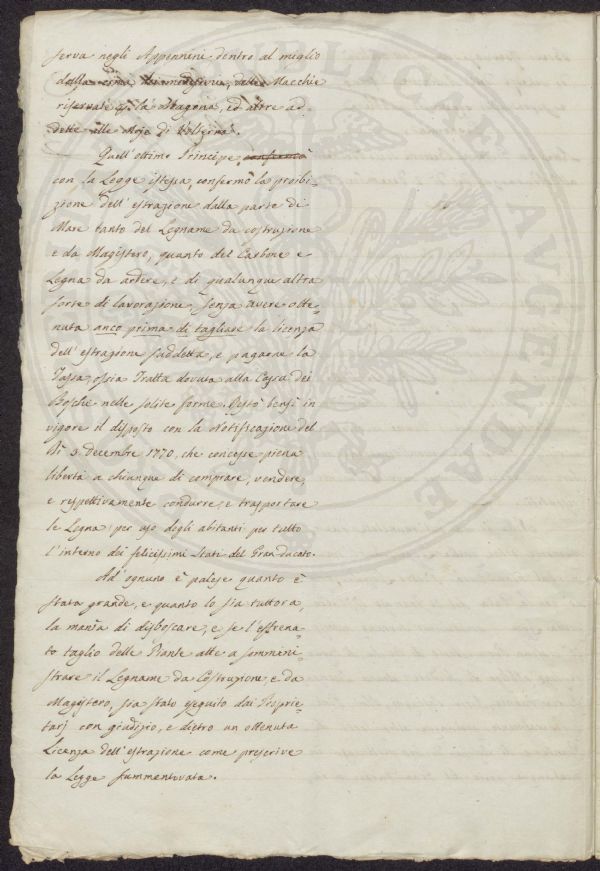 serva negli Appennini dentro al miglio
dalla cima dei medesimi, delle Macchie
riservate la Magona, ed altre ad-
dette alle Moje di Volterra.
Quell'ottimo Principe confermò
con la Legge istessa, confermò la proibi-
zione dell'estrazione dalla parte di
Mare tanto del Legname da costruzione
e da Magistero, quanto del Carbone e
Legna da ardere, e di qualunque altra
sorte di lavorazione senza avere otte-
nuta anco prima di tagliare la licenza
dell'estrazione suddetta, e pagarne la
Tassa, ossia Tratta dovuta alla Cassa dei
Boschi nelle solite forme. Restò bensì in
vigore il disposto con la Notificazione del
dì 3. decembre 1770, che concesse piena
libertà a chiunque di comprare, vendere,
e respettivamente condurre, e trasportare
le Legna per uso degli abitanti per tutto
l'interno dei felicissimi Stati del Gran-ducato.
Ad'ognuno è palese quanto è
stata grande, e quanto lo sia tuttora,
la manìa di disboscare, e se l'estrena-
to taglio delle Piante atte a sommini-
strare il Legname da Costruzione, e da
Magistero, sia stato eseguito dai Proprie-
tarj con giudizio, e dietro un ottenuta
Licenza dell'estrazione come prescrive
la Legge summentovata.